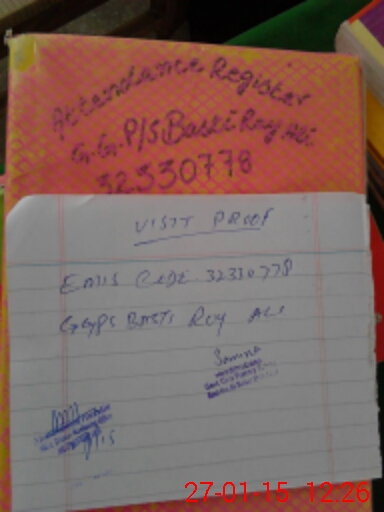 Attendance Register
G.G.P/S Basti Roy Ali
32330778
VISIT PROOF
EMIS CODE 32330778
GGPS BASTI ROY ALI
27-01-15 12:26